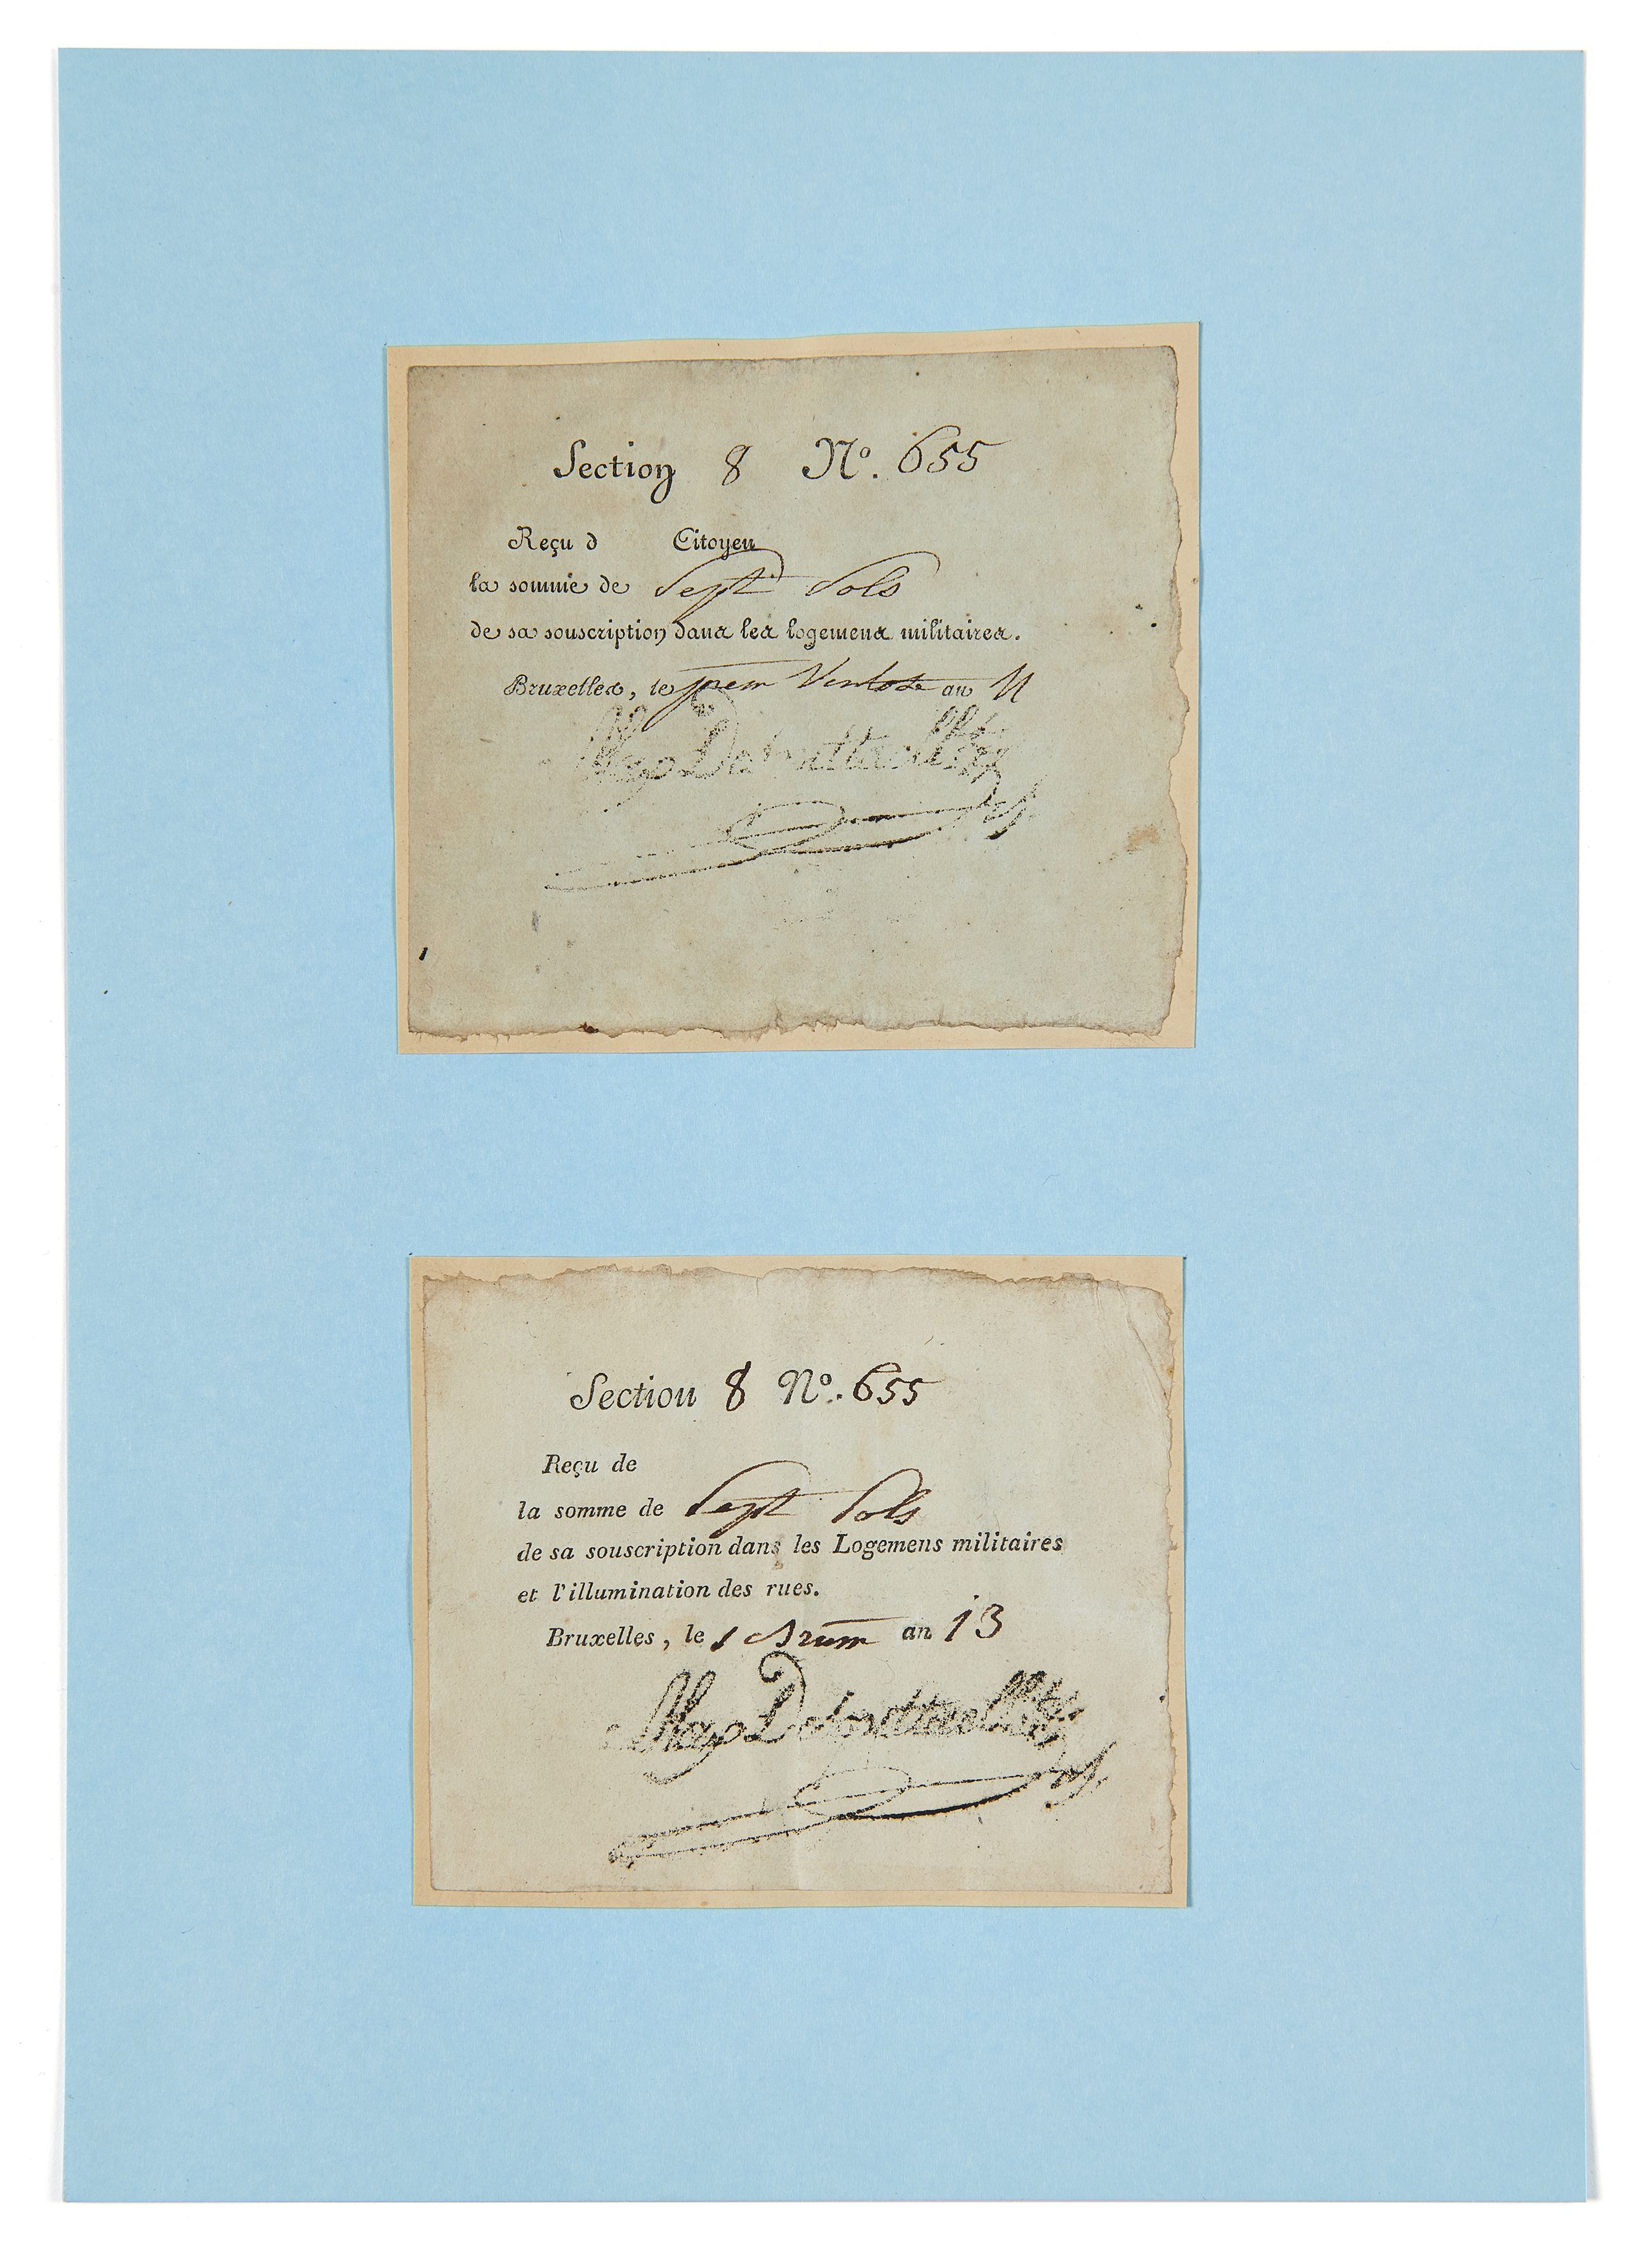 Section 8 Nº. 655
Reçu d Citoyen
la somme de Sept Sols
de sa souscription dans les logemens militaires.
Bruxelles, le prem Ventose an 11
Section 8 Nº. 655
Reçu de
la somme de Sept Sols
de sa souscription dans les Logemens militaires
et l'illumination des rues.
Bruxelles, le 1 Brum an 13